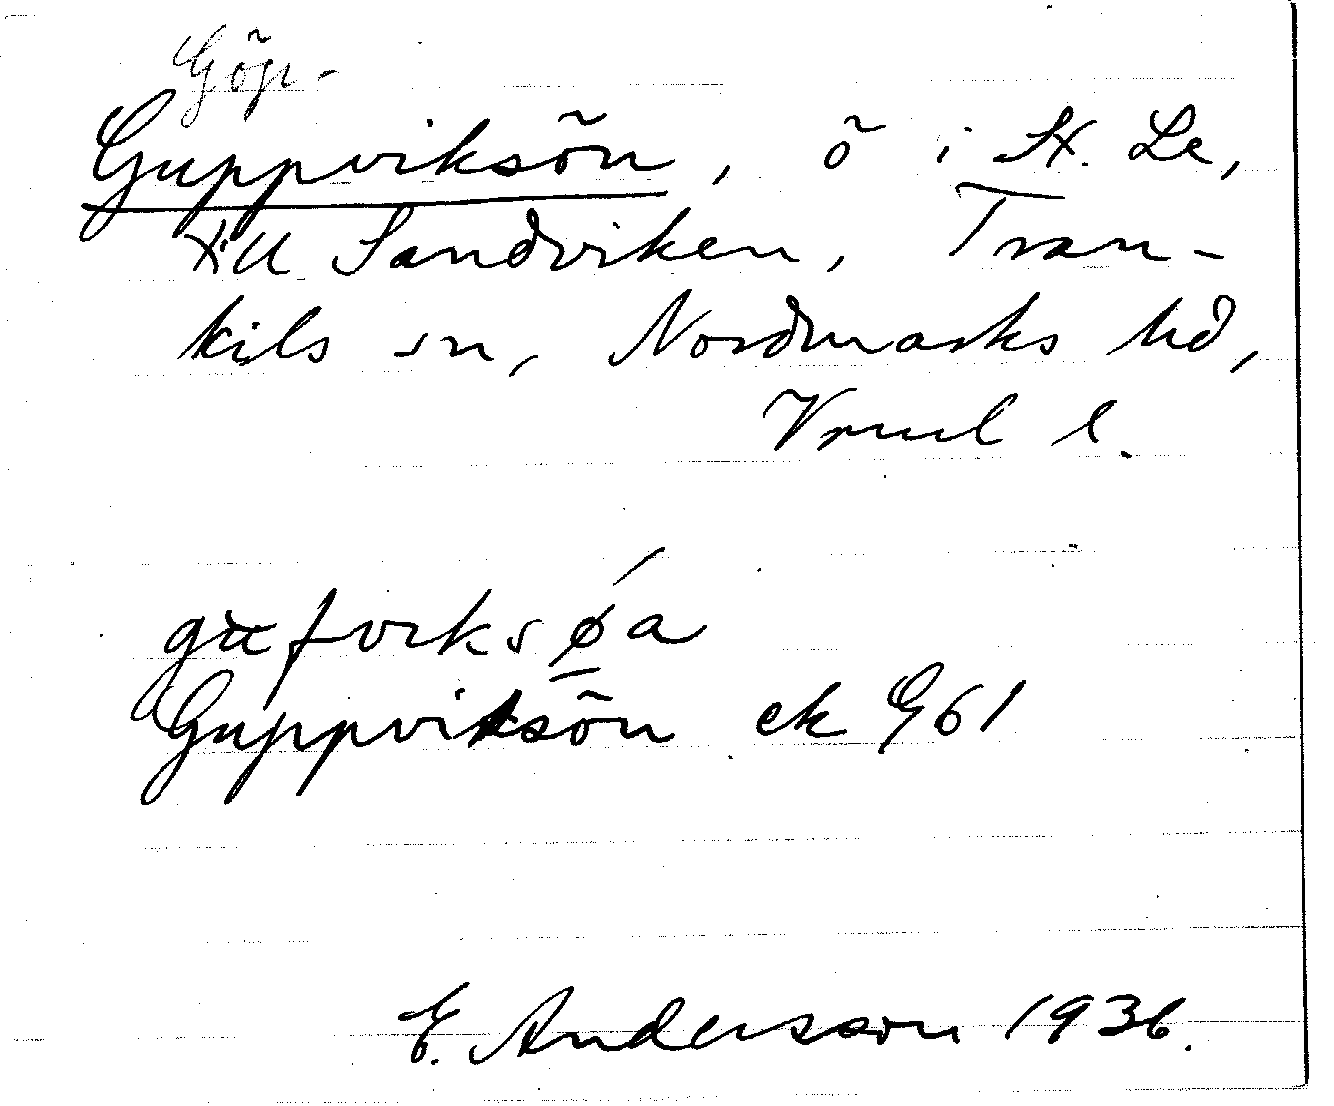 Göp-
Guppviksön, ö i St. Le,
till Sandviken, Tran-
kils sn, Nordmarks hd,
Vrml l.
Guppviksön ek G61
E. Andersson 1936.